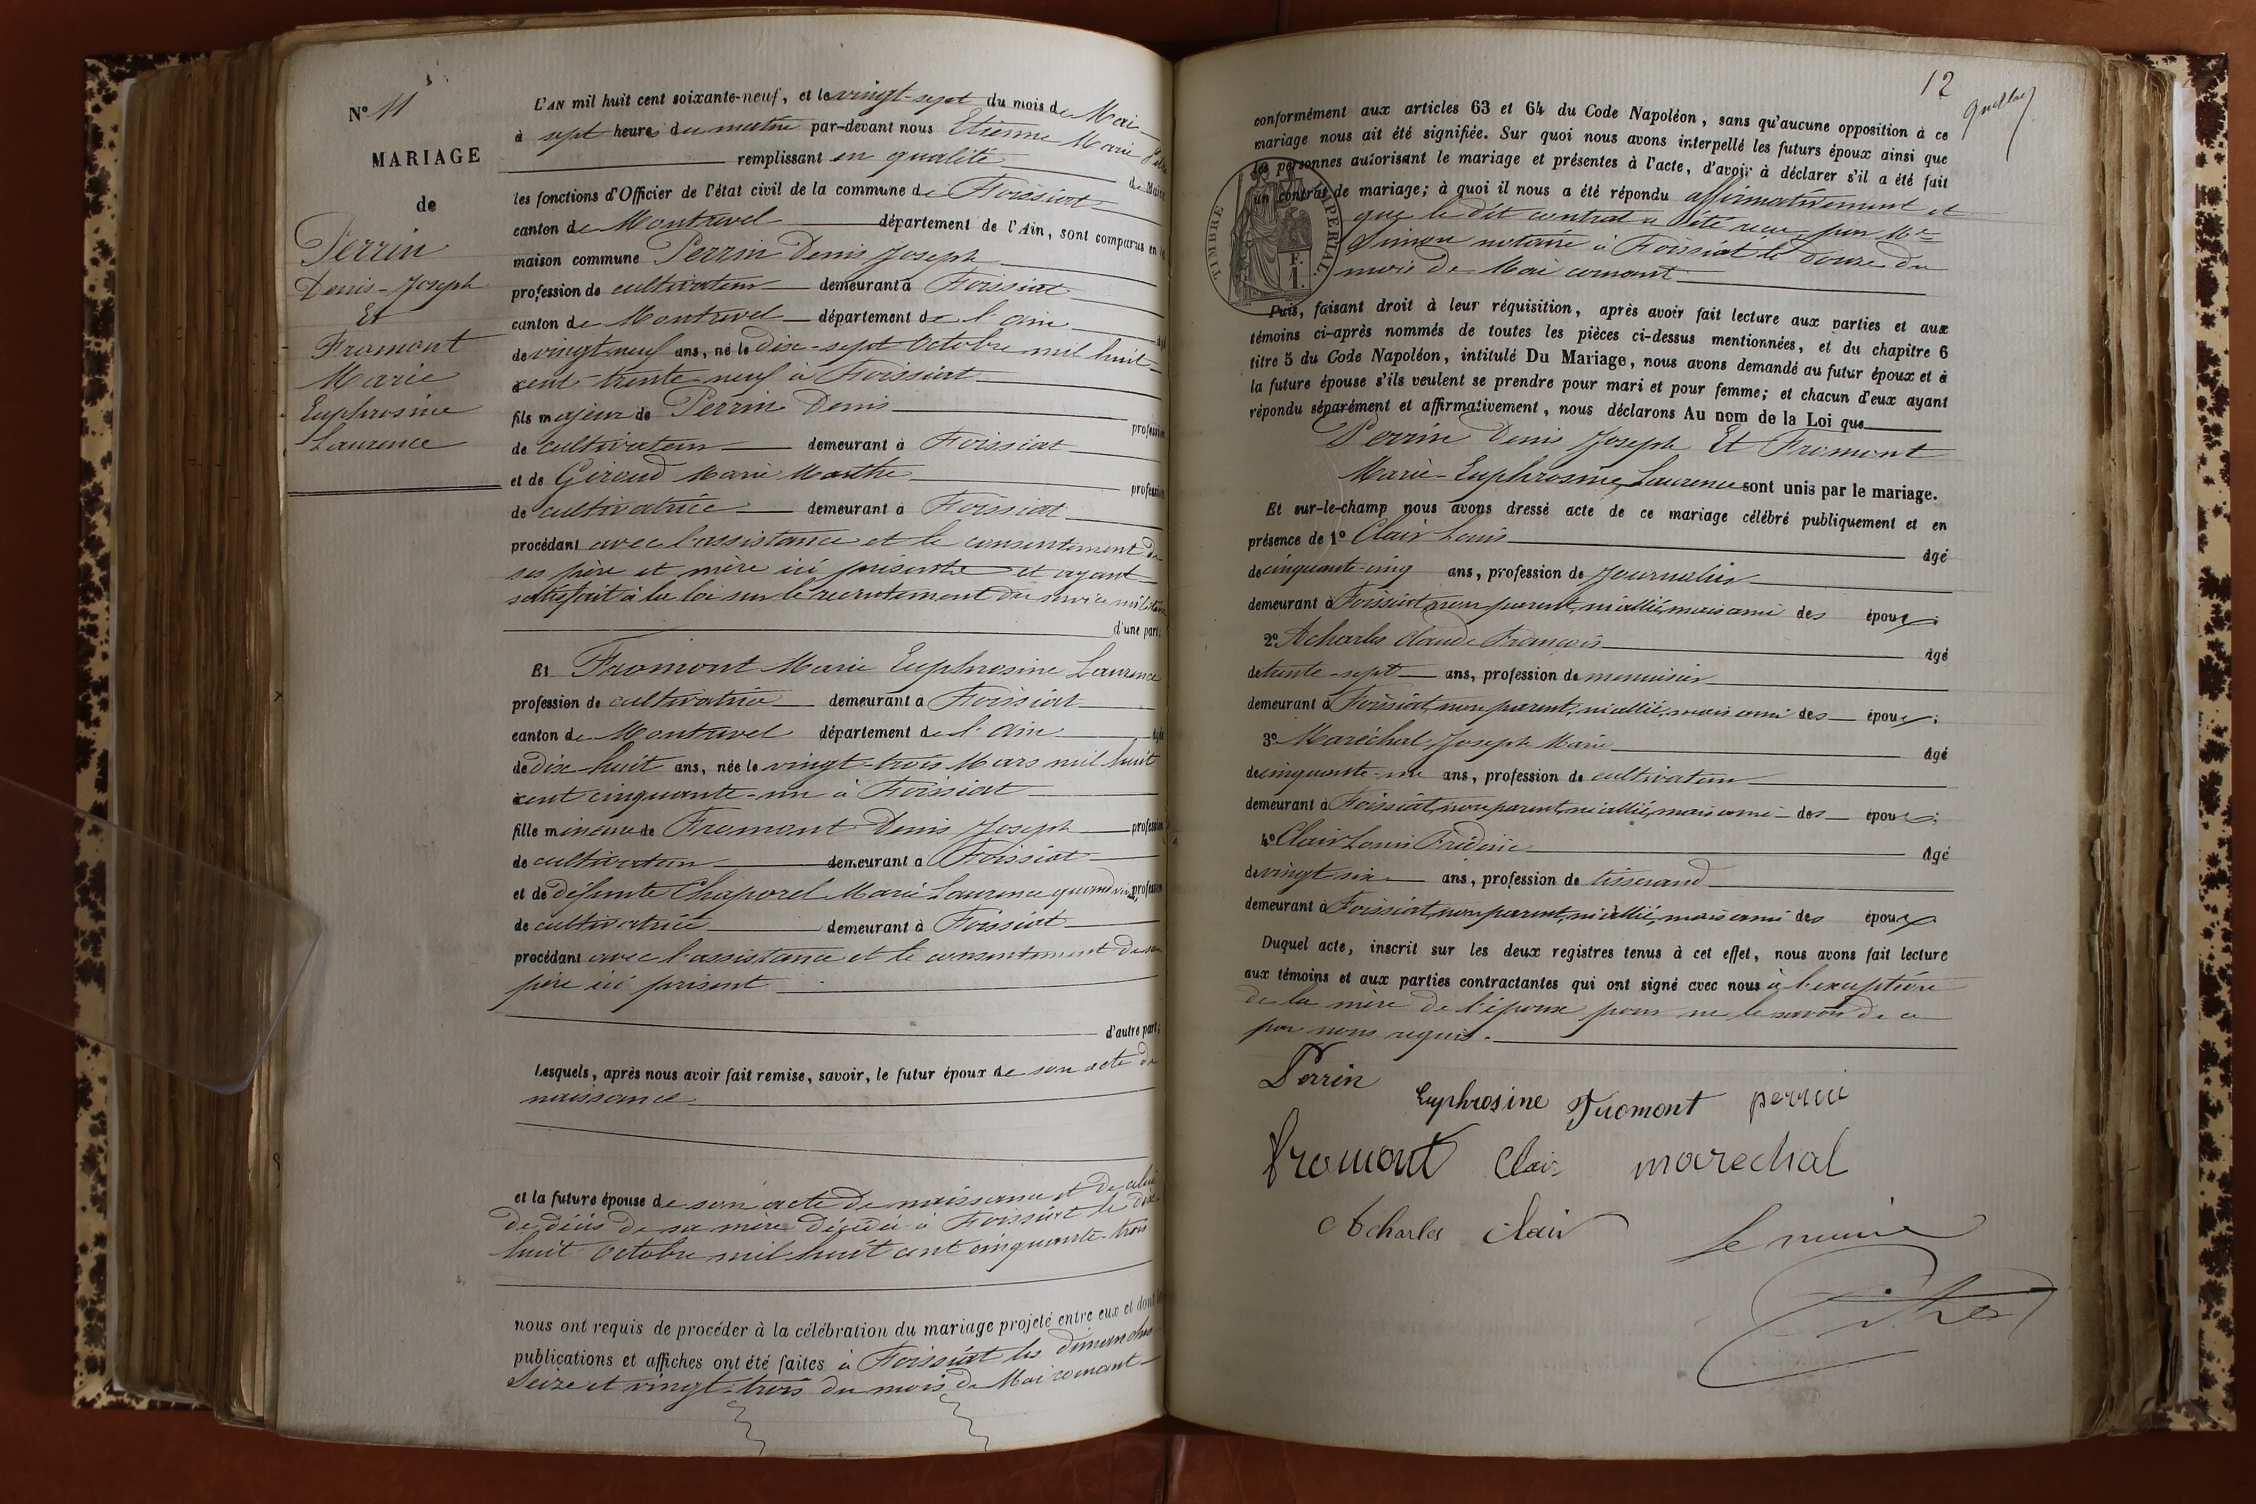 N° 11
MARIAGE
de
Perrin
Denis-Joseph
Et
Fromont
Marie
Euphrosine
Laurence
L'AN mil huit cent soixante-neuf, et le vingt-sept du mois de Mai
à sept heures du matin par-devant nous Etienne Marie
remplissant en qualité de Maire
les fonctions d'Officier de l'état civil de la commune de Foissiat
canton de Montrevel département de l'Ain, sont comparus en la
maison commune Perrin Denis Joseph
profession de cultivateur demeurant à Foissiat
canton de Montrevel département de l'ain âgé
de vingt neuf ans, né le dix-sept Octobre mil huit
cent trente neuf à Foissiat
fils majeur de Perrin Denis profession
de cultivateur demeurant à Foissiat
et de Giroud Marie Marthe profession
de cultivatrice demeurant à Foissiat
procédant avec l'assistance et le consentement de
ses père et mère ici présents et ayant
satisfait à la loi sur le recrutement du service militaire
d'une part;
Et Fromont Marie Euphrosine Laurence
profession de cultivatrice demeurant à Foissiat
canton de Montrevel département de l'Ain âgée
de dix-huit ans, née le vingt-trois Mars mil huit
cent cinquante-un à Foissiat
fille mineure de Fromont Denis Joseph profession
de cultivateur demeurant à Foissiat
et de défunte Chaporel Marie Laurence quand vivait, profession
de cultivatrice demeurant à Foissiat
procédant avec l'assistance et le consentement de son
père ici présent
d'autre part;
Lesquels, après nous avoir fait remise, savoir, le futur époux de son acte de
naissance
et la future épouse de son acte de naissance et de celui
de décès de sa mère décédée à Foissiat le dix
huit Octobre mil huit cent cinquante-trois
nous ont requis de procéder à la célébration du mariage projeté entre eux et dont les
publications et affiches ont été faites à Foissiat les dimanches
Seize et vingt-trois du mois de Mai courant
12
conformément aux articles 63 et 64 du Code Napoléon, sans qu'aucune opposition à ce
mariage nous ait été signifiée. Sur quoi nous avons interpellé les futurs époux ainsi que
les personnes autorisant le mariage et présentes à l'acte, d'avoir à déclarer s'il a été fait
un contrat de mariage; à quoi il nous a été répondu affirmativement et
que le dit contrat a été reçu par Me
Simon notaire à Foissiat le douze du
mois de Mai courant
TIMBRE IMPÉRIAL
F.
1.
Puis, faisant droit à leur réquisition, après avoir fait lecture aux parties et aux
témoins ci-après nommés de toutes les pièces ci-dessus mentionnées, et du chapitre 6
titre 5 du Code Napoléon, intitulé Du Mariage, nous avons demandé au futur époux et à
la future épouse s'ils veulent se prendre pour mari et pour femme; et chacun d'eux ayant
répondu séparément et affirmativement, nous déclarons Au nom de la Loi que
Perrin Denis Joseph Et Fromont
Marie-Euphrosine Laurence sont unis par le mariage.
Et sur-le-champ nous avons dressé acte de ce mariage célébré publiquement et en
présence de 1° Clair Louis âgé
de cinquante-cinq ans, profession de Journalier
demeurant à Foissiat, non parent, ni allié, mais ami des époux;
2° Acharles Claude François âgé
de trente-sept ans, profession de menuisier
demeurant à Foissiat, non parent, ni allié, mais ami des époux;
3° Maréchal Joseph Marie âgé
de cinquante-un ans, profession de cultivateur
demeurant à Foissiat, non parent, ni allié, mais ami des époux;
4° Clair Louis Frédéric âgé
de vingt six ans, profession de tisserand
demeurant à Foissiat, non parent, ni allié, mais ami des époux
Duquel acte, inscrit sur les deux registres tenus à cet effet, nous avons fait lecture
aux témoins et aux parties contractantes qui ont signé avec nous à l'exception
de la mère de l'époux pour ne le savoir de ce
par nous requis.
Perrin
Euphrosine Fromont perrin
fromont Clair marechal
Acharles Clair Le maire